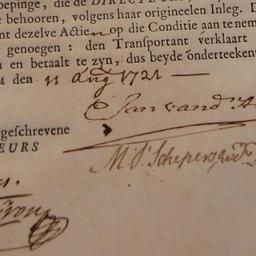 bepinge, die de DIRECTE
te behooren, volgens haar origineelen Inleg. D
nt dezelve Actien op die Conditie aan te nem
genoegen: den Transportant verklaart
en betaalt te zyn, dus beyde onderteeken
den 11 Aug 1721
Jan vand
geschrevene
EURS
M. V. Schepers